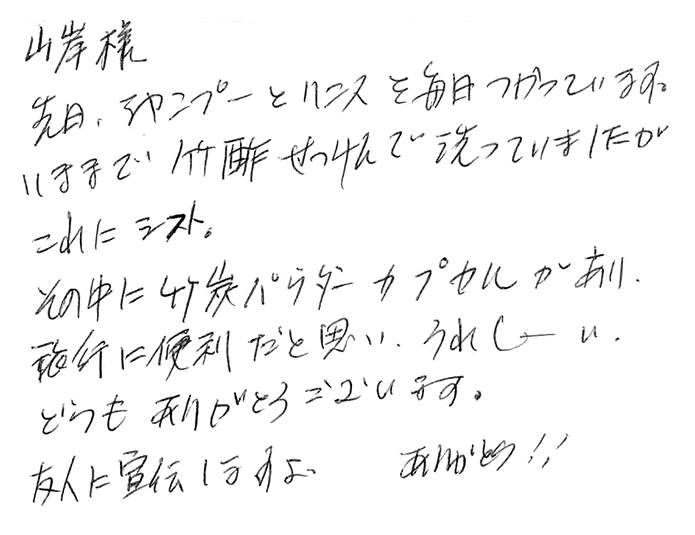 山岸様
先日、シャンプーとリンスを毎日つかっています。
いままで竹酢せっけんで洗っていましたが
これにシフト。
その中に竹炭パウダーカプセルがあり、
旅行に便利だと思い、うれしーい。
どうもありがとうございます。
友人に宣伝しますよ。 ありがとう!!